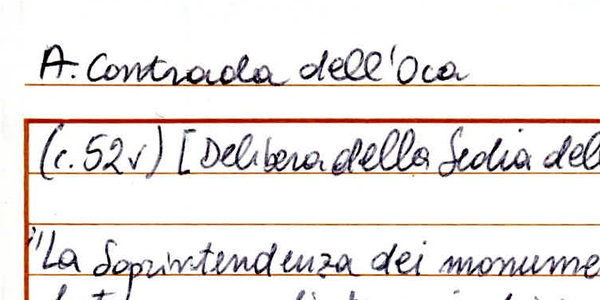 A. Contrada dell'Oca
(c. 52v) [Delibera della Sedia del
"La Soprintendenza dei monume